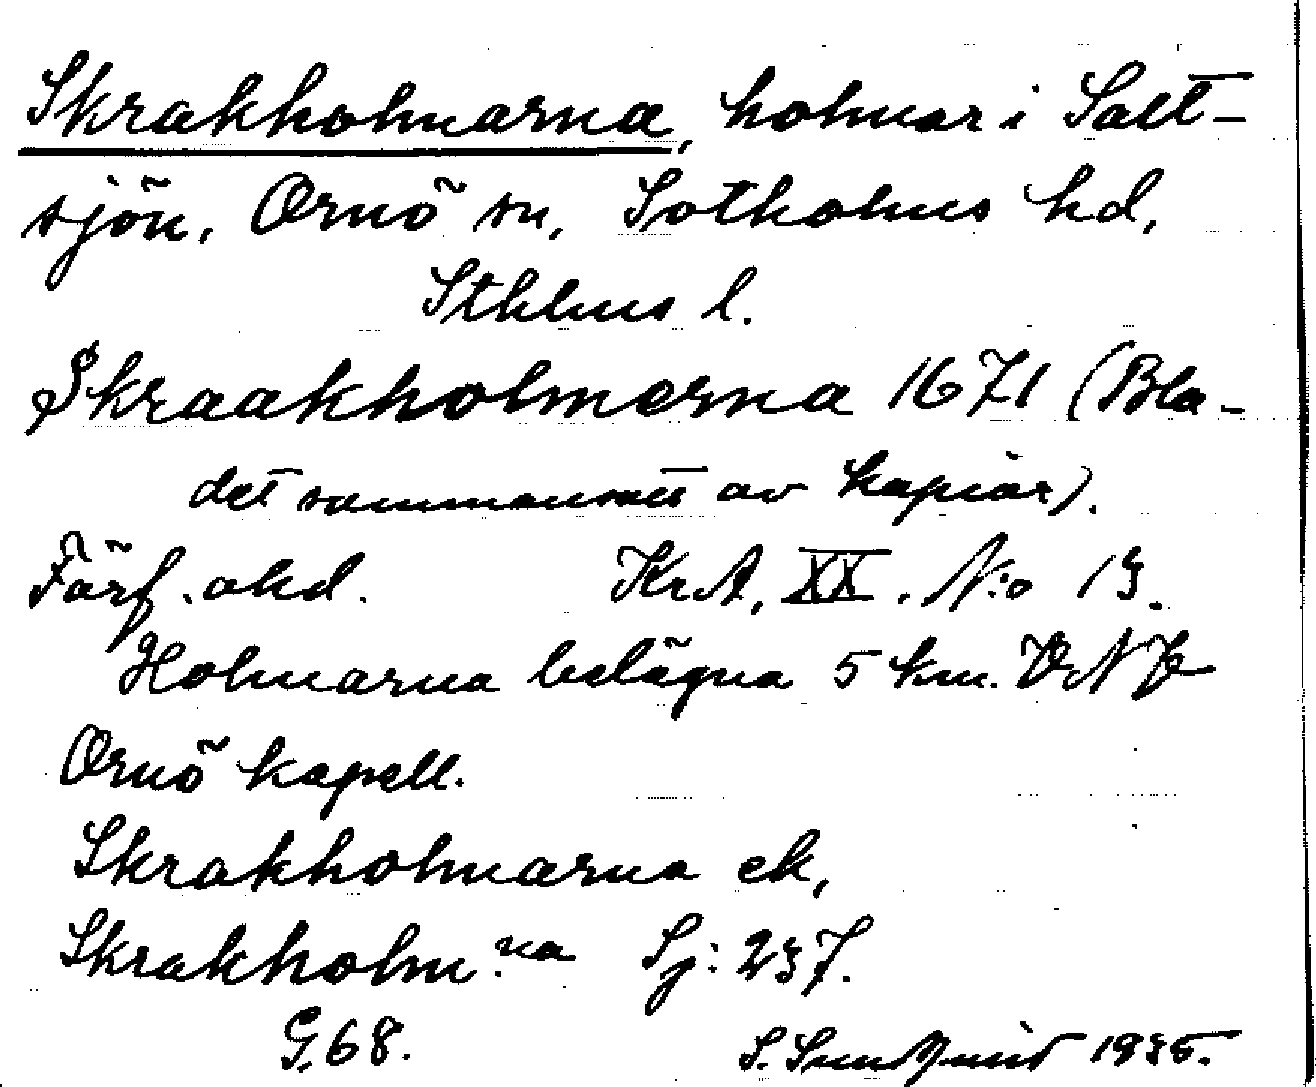 Skrakholmarna, holmar i Salt-
sjön, Ornö sn, Sotholms hd,
Sthlms l.
Skraakholmerna 1671 (Bla-
det sammansatt av kapior).
Färf. okd. KrA, XX. N:o 13.
Holmarna belägna 5 km.
Ornö kapell.
Skrakholmarna ek,
Skrakholm:na Sj: 237.
G.68. S. Sundquist 1935.